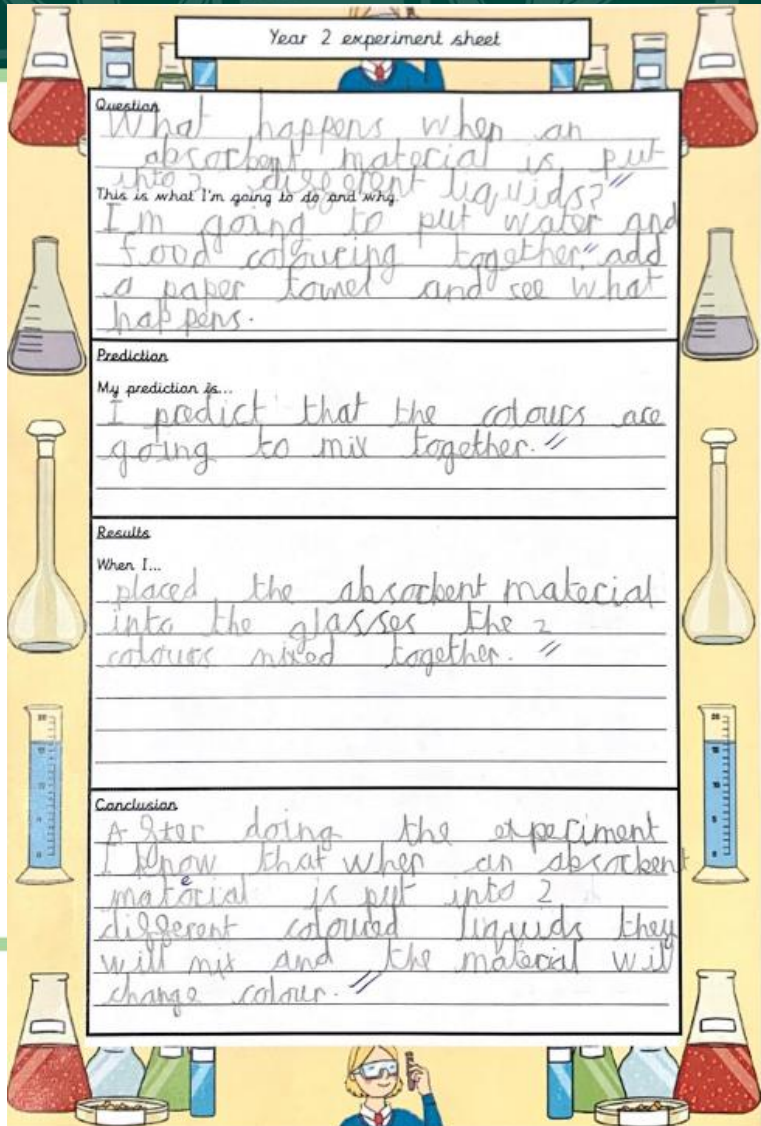 Year 2 experiment sheet
Question
What happens when an
absorbent material is put
into 2 different liquids?
This is what I'm going to do and why.
I'm going to put water and
food colouring together, add
a paper towel and see what
happens.
Prediction
My prediction is...
I predict that the colours are
going to mix together.
Results
When I...
placed the absorbent material
into the glasses the 2
colours mixed together.
Conclusion
After doing the experiment
I know that when an absorbent
material is put into 2
different coloured liquids they
will mix and the material will
change colour.